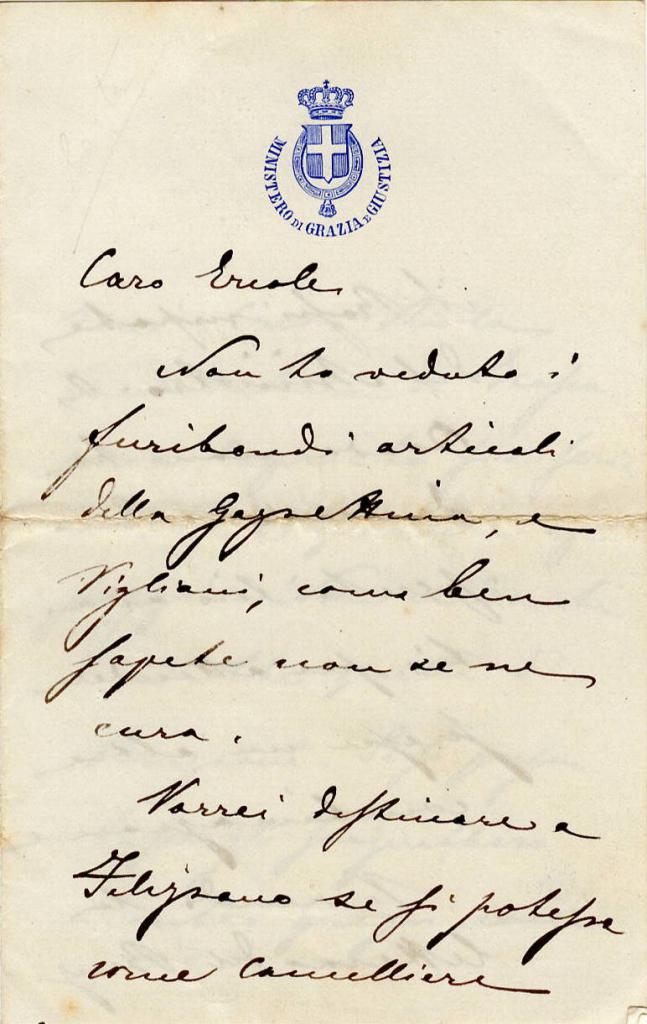 MINISTERO DI GRAZIA E GIUSTIZIA
Caro Ercole
Non ho veduto i
furibondi articoli
della Gazzettina, e
Vigliani, come ben
sapete non se ne
cura.
Vorrei destinare a
Felizzano se si potesse
come Cancelliere